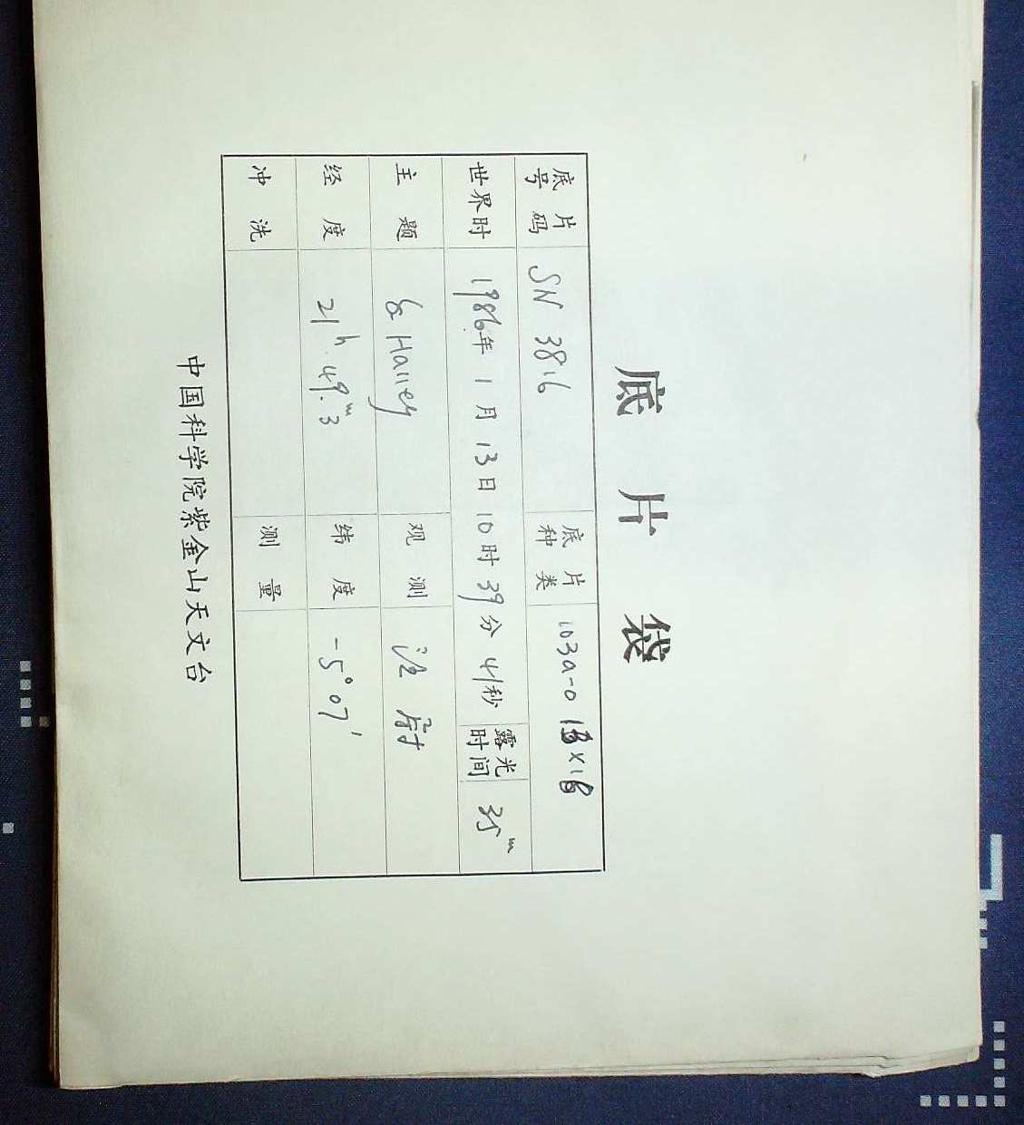 底片袋
底片号码 SN 3816 底片种类 103a-O 16×16
世界时 1986年1月13日10时39分41秒 露光时间 35m
主题 & Halley 观测
经度 21h 49m.3 纬度 -5°07′
冲洗 测量
中国科学院紫金山天文台